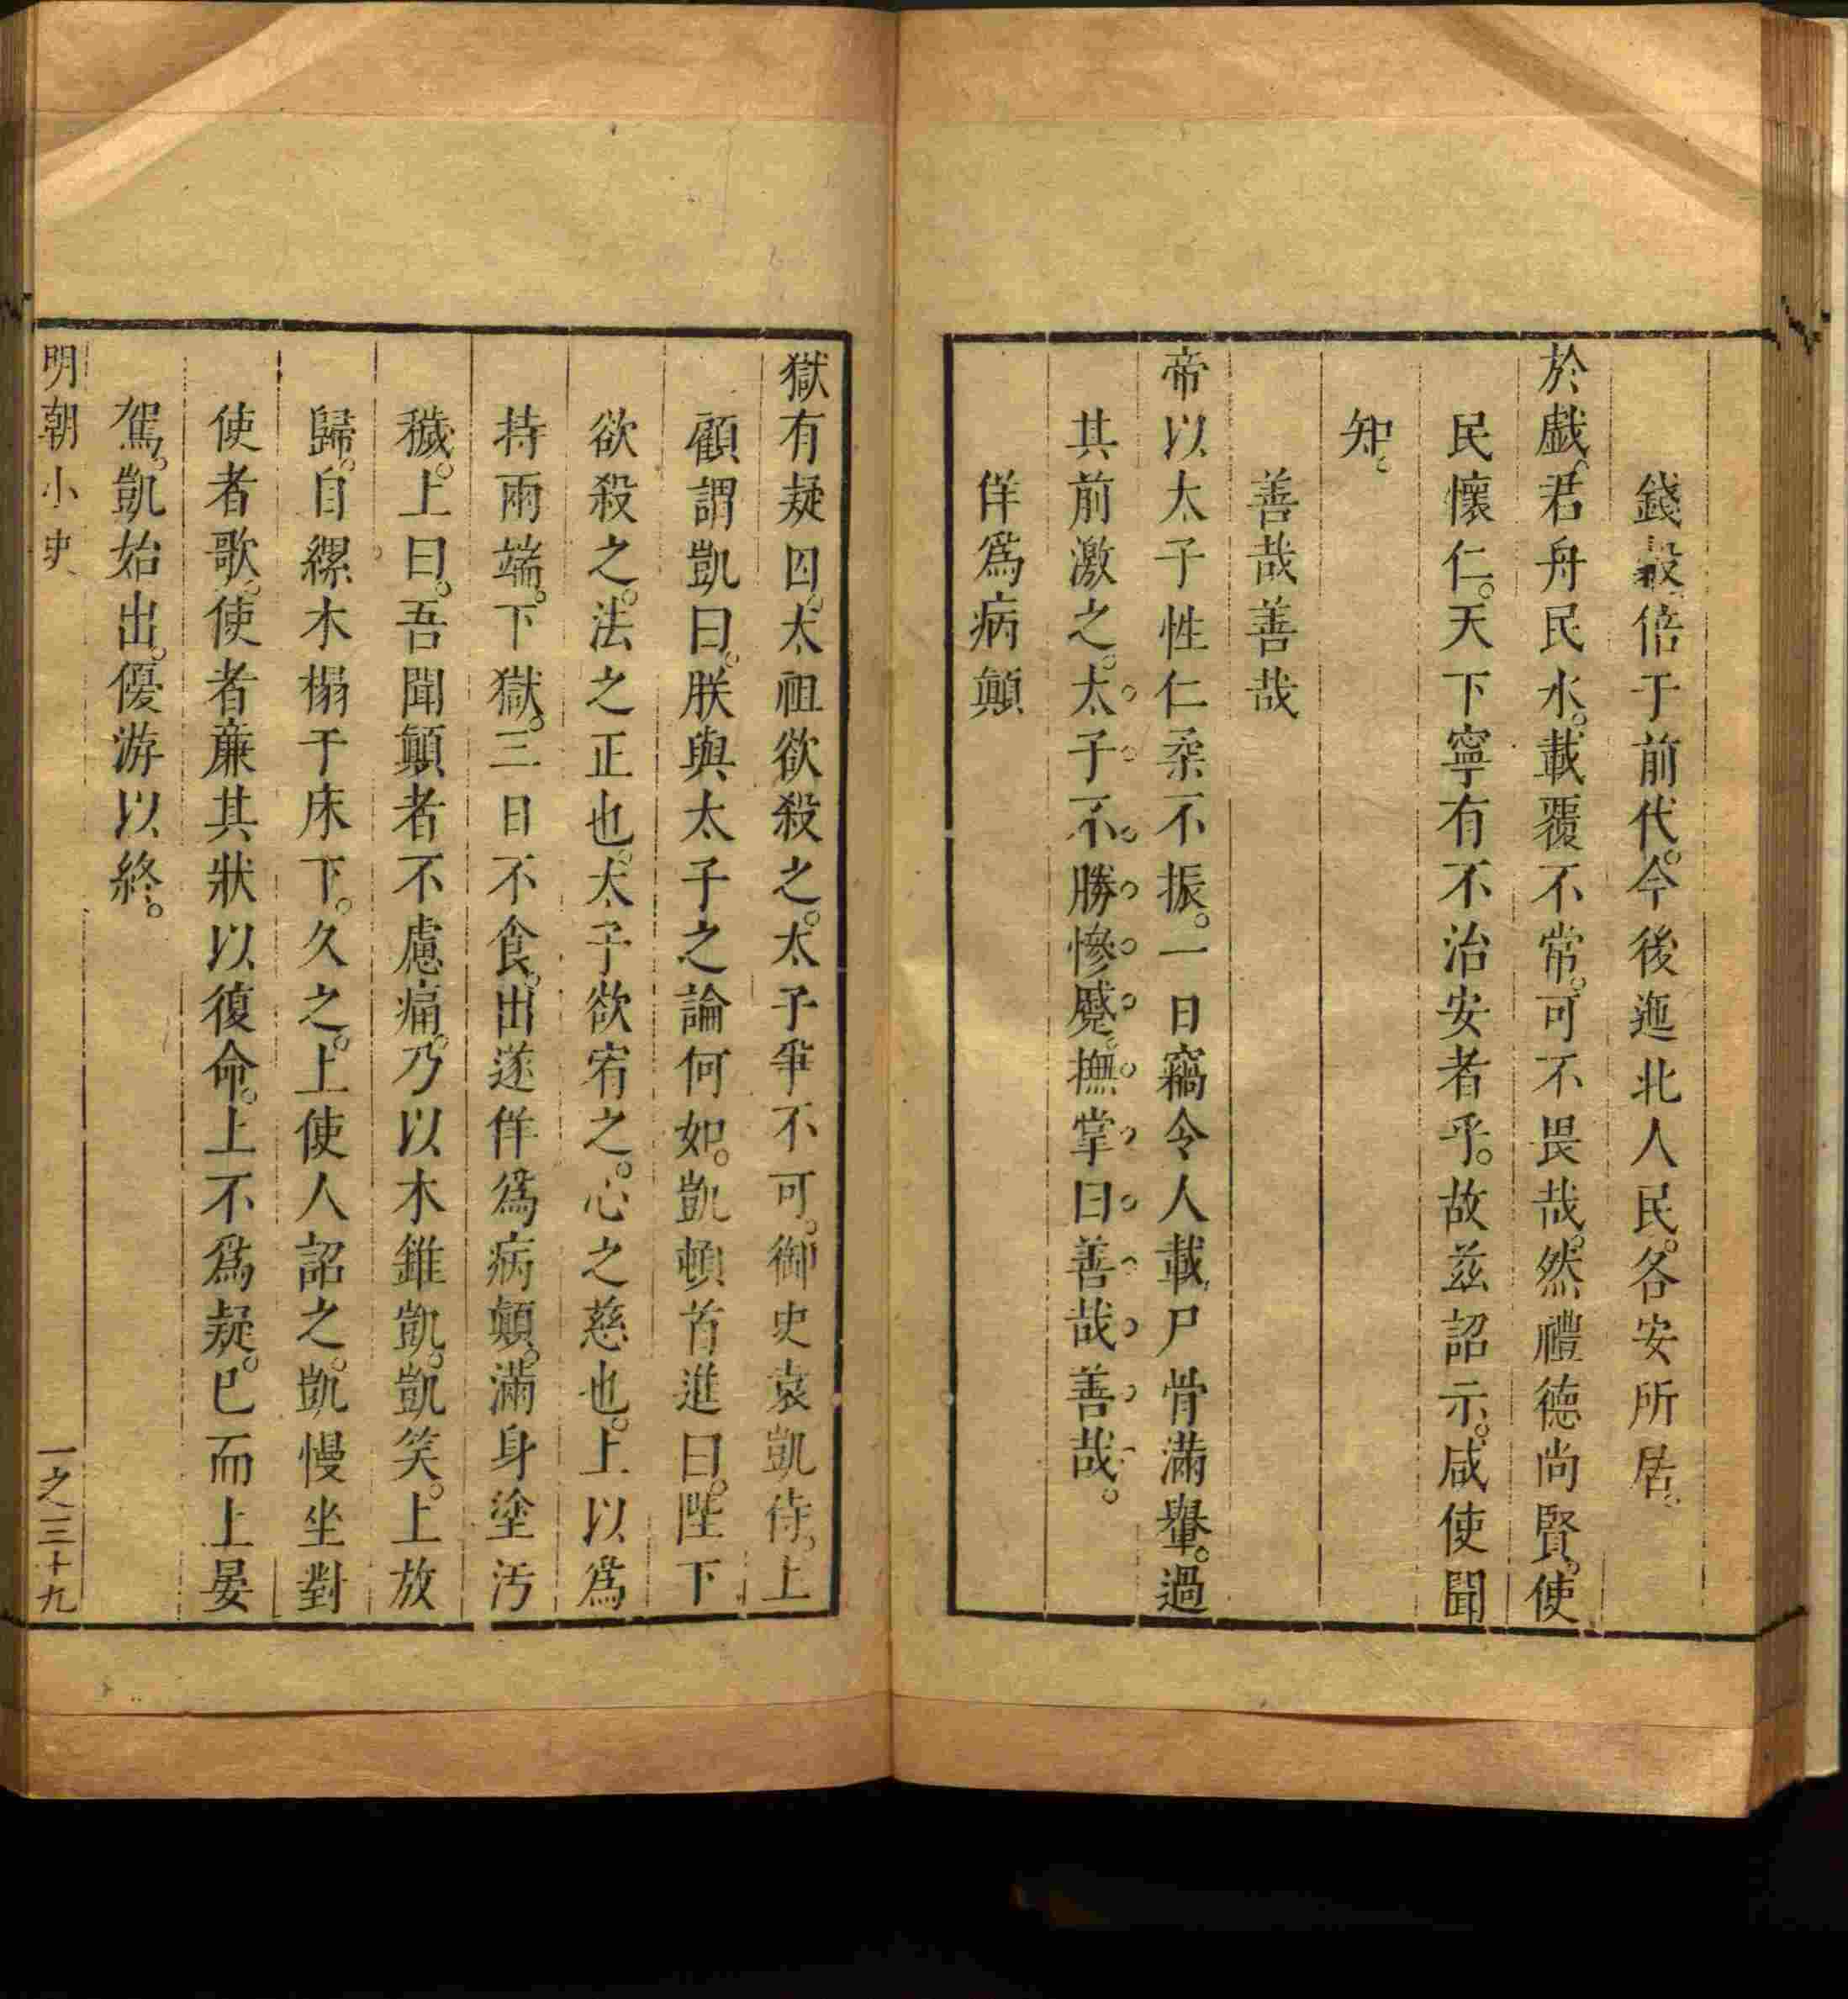 錢穀倍于前代。今後迤北人民。各安所居。
於戲。君舟民水。載覆不常。可不畏哉。然禮德尚賢。使
民懷仁。天下寧有不治安者乎。故玆詔示。咸使聞
知。
善哉善哉
帝以太子性仁柔不振。一日竊令人載尸骨滿轝。過
其前激之。太子不勝慘慼。撫掌曰善哉善哉。
佯爲病顛
獄有疑囚。太祖欲殺之。太子爭不可。御史袁凱侍。上
顧謂凱曰。朕與太子之論何如。凱頓首進曰。陛下
欲殺之。法之正也。太子欲宥之。心之慈也。上以爲
持兩端。下獄。三日不食。出遂佯爲病顛。滿身塗汚
穢。上曰。吾聞顛者不慮痛。乃以木錐凱。凱笑。上放
歸。自縲木榻于床下。久之。上使人詔之。凱慢坐對
使者歌。使者廉其狀以復命。上不爲疑。已而上晏
駕。凱始出。優游以終。
明朝小史
一之三十九